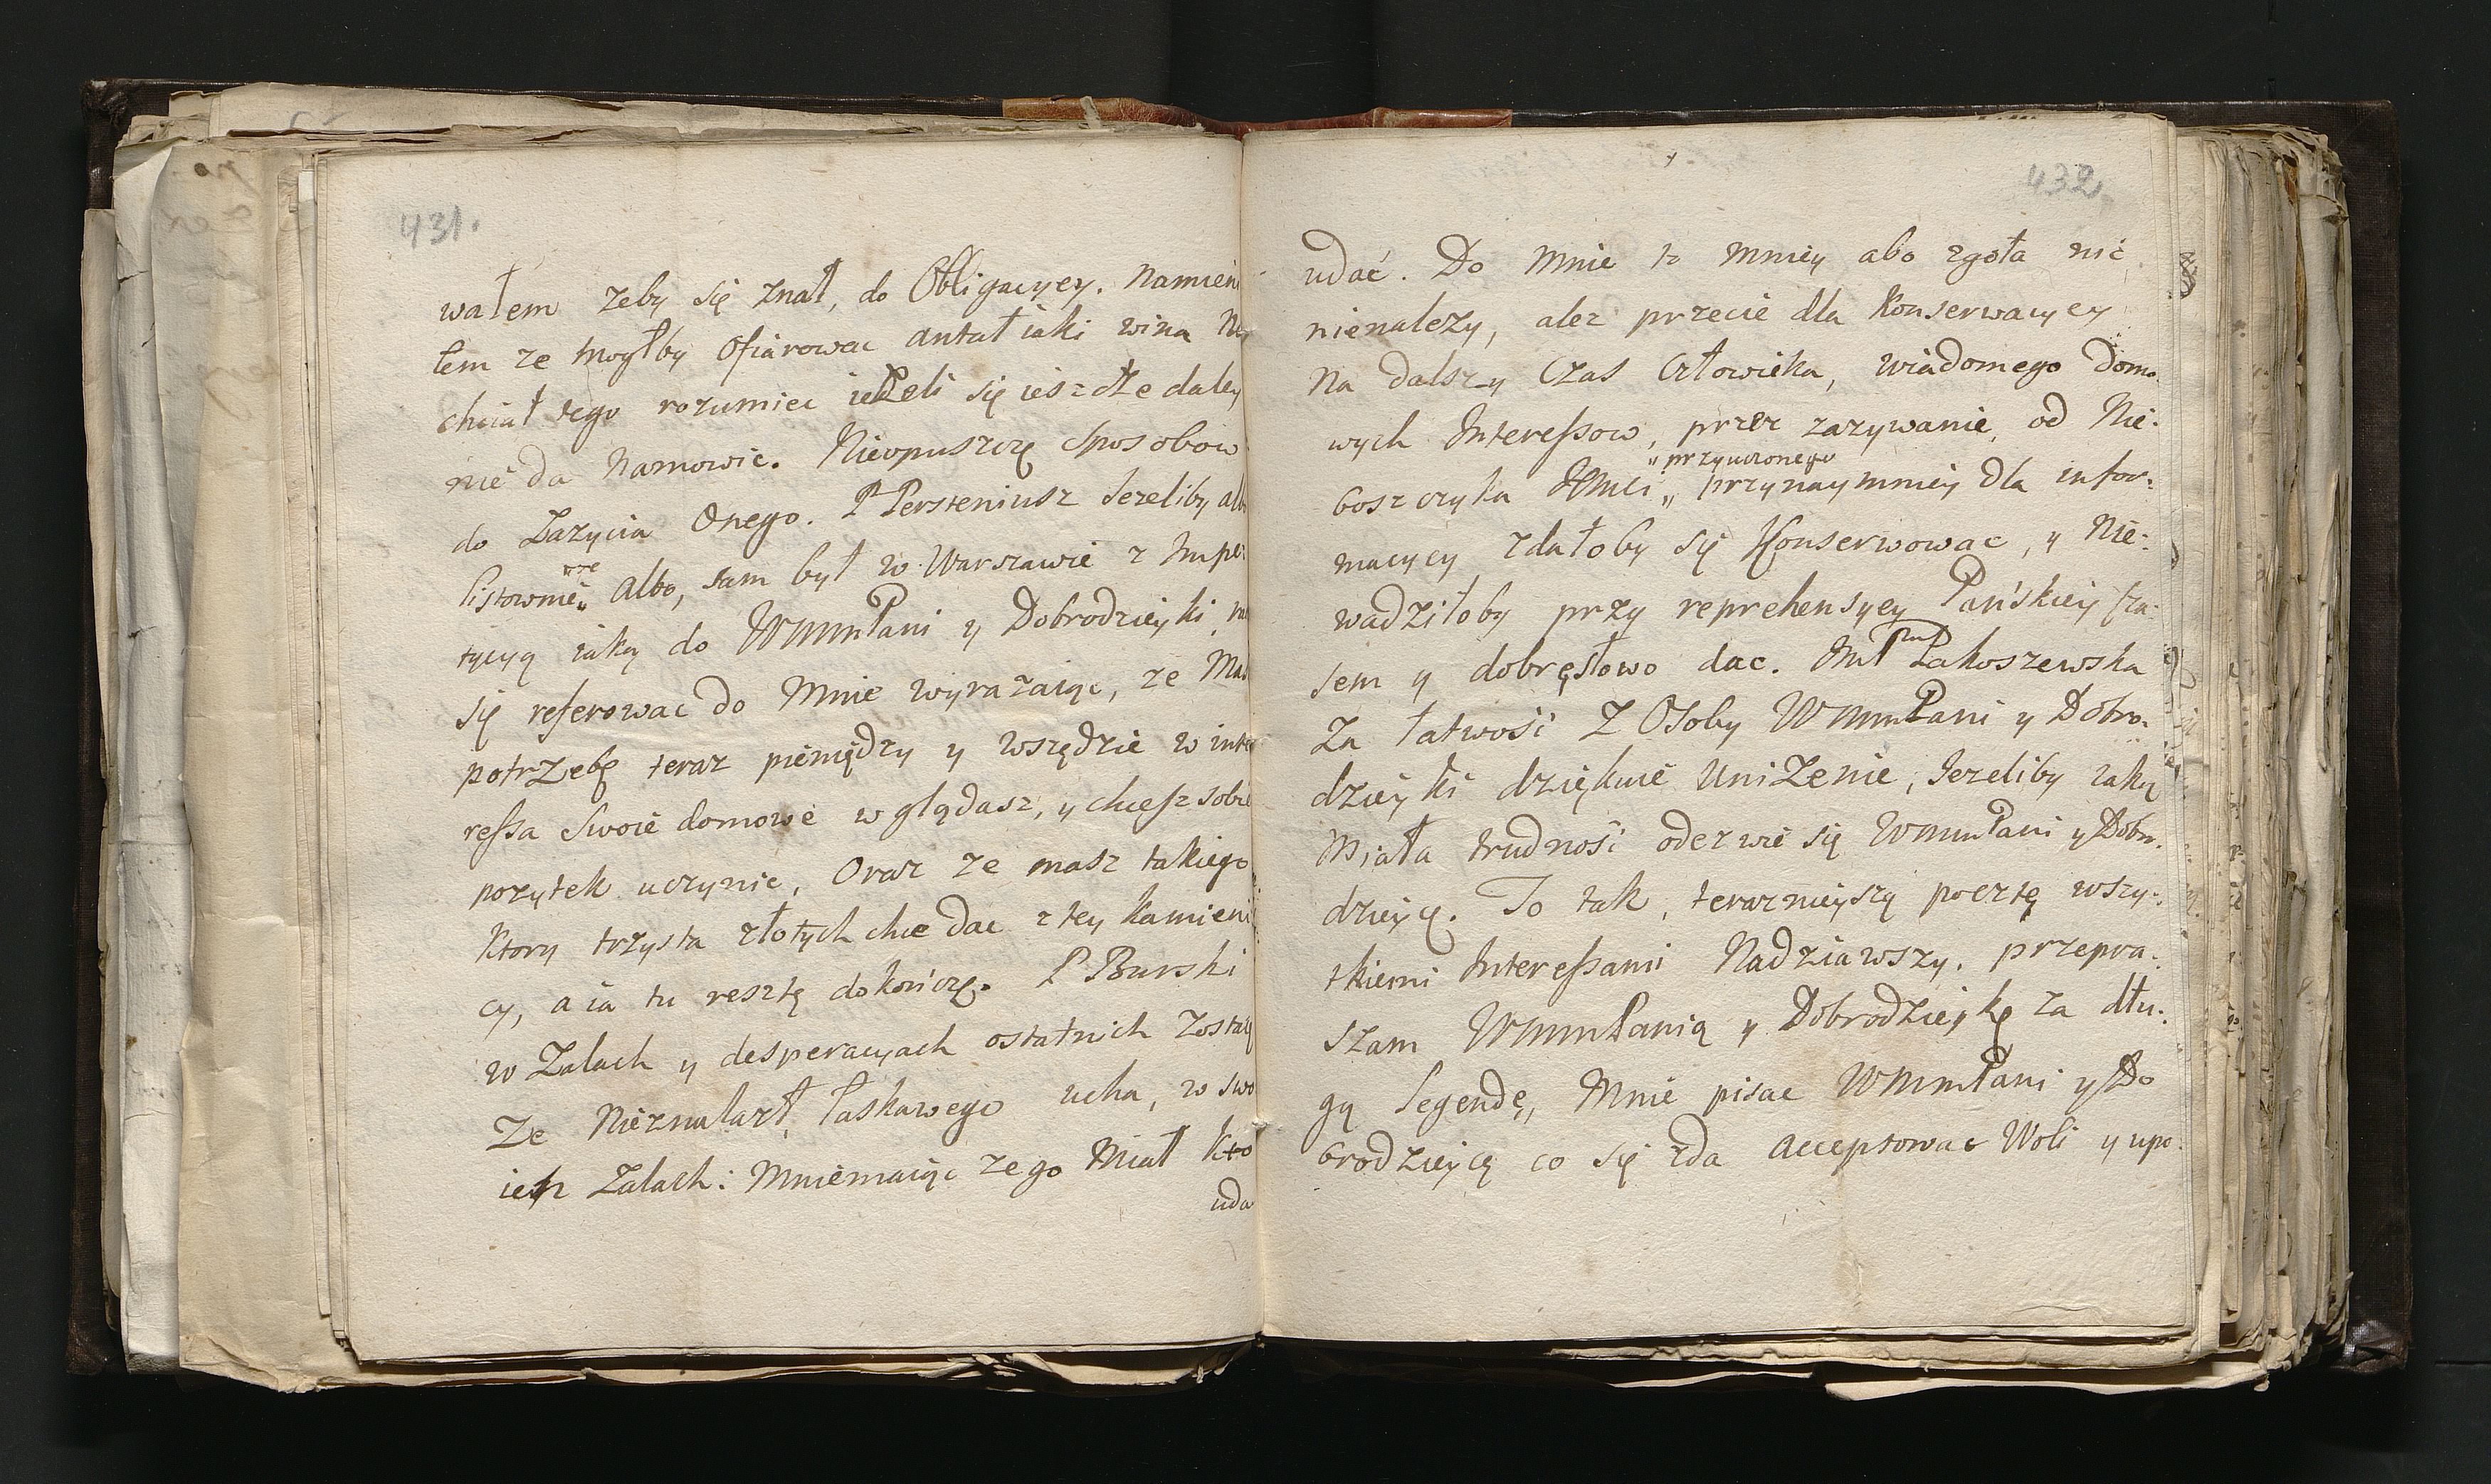 431.
wałem zeby się znał, do Obligacyey. Namieni
łem ze mogłby ofiarowac antał iaki wina
chciał tego rozumiec ieżeli się ieszcze daley
nie da namowic. Nieopuszczę sposobow
do Zazycia Onego. P Persteniusz Jezeliby alb
listownie albo, sam był w Warszawie z Impe
tycyą iaką do WMmPani y Dobrodzieyki,
się referowac do Mnie wyrazaiąc, ze Mas
potrzebę teraz pieniędzy y wszędzie w inte
ressa Swoie domowe wglądasz, y chcesz sobie
pozytek uczynic, Oraz ze masz takiego
Ktory trzysta złotych chce dac z tey kamieni
cy, a ia tu resztę dokończę. P Burski
w Zalach y desperacyach ostatnich zostaię
Ze Nieznalazł, łaskawego ucha, w swo
ich Zalach: Mniemaiąc ze go Miał kto
uda
432.
udać. Do Mnie to mniey abo zgoła nic
nienalezy, alez przecie dla Konserwacyey
na dalszy Czas Człowieka, wiadomego Domo
wych Interessow, przez zazywanie, od Nie:
boszczyka JEMci „ przynaymniey dla infor:
„przyuczonego
macycy zdałoby się Konserwowac, y Nie:
wadziłoby przy reprehensyey Pańskiey cza:
sem y dobręsłowo dac. JmP Zakoszewska
Za łatwość Z Osoby WMmPani y Dobro.
dzieyki dziękuie Uniżenie, Jezeliby iaką
Miała trudność odezwie się WMmPani y Dobro.
dzieycę. To tak, terazmieyszą pocztę wszy:
tkiemi Interessami Nadziawszy. przepra:
szam WMmPanią y Dobrodzieykę za dłu:
gą Legendę, Mnie pisac WMmPani y Do
brodzieycę co się zda Acceptowac Woli y upo: